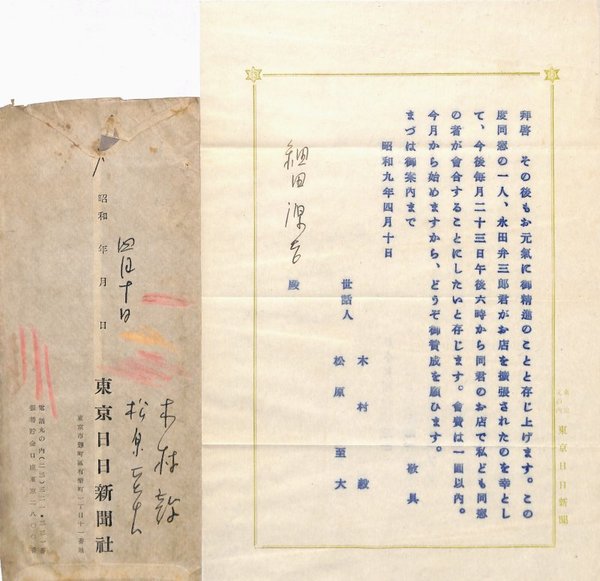 拜啓 その後もお元氣に御精進のことと存じ上げます。この
度同窓の一人、永田弁三郎君がお店を擴張されたのを幸とし
て、今後毎月二十三日午後六時から同君のお店で私ども同窓
の者が會合することにしたいと存じます。會費は一圓以内。
今月から始めますから、どうぞ御賛成を願ひます。
まづは御案内まで
敬具
昭和九年四月十日
世話人
木村 毅
松原 至大
細田源吉
殿
東京日日新聞
昭和 年 月 日
四月十日
木村毅
松原至大
東京日日新聞社
東京市麴町區有樂町一丁目十一番地
電話丸の内